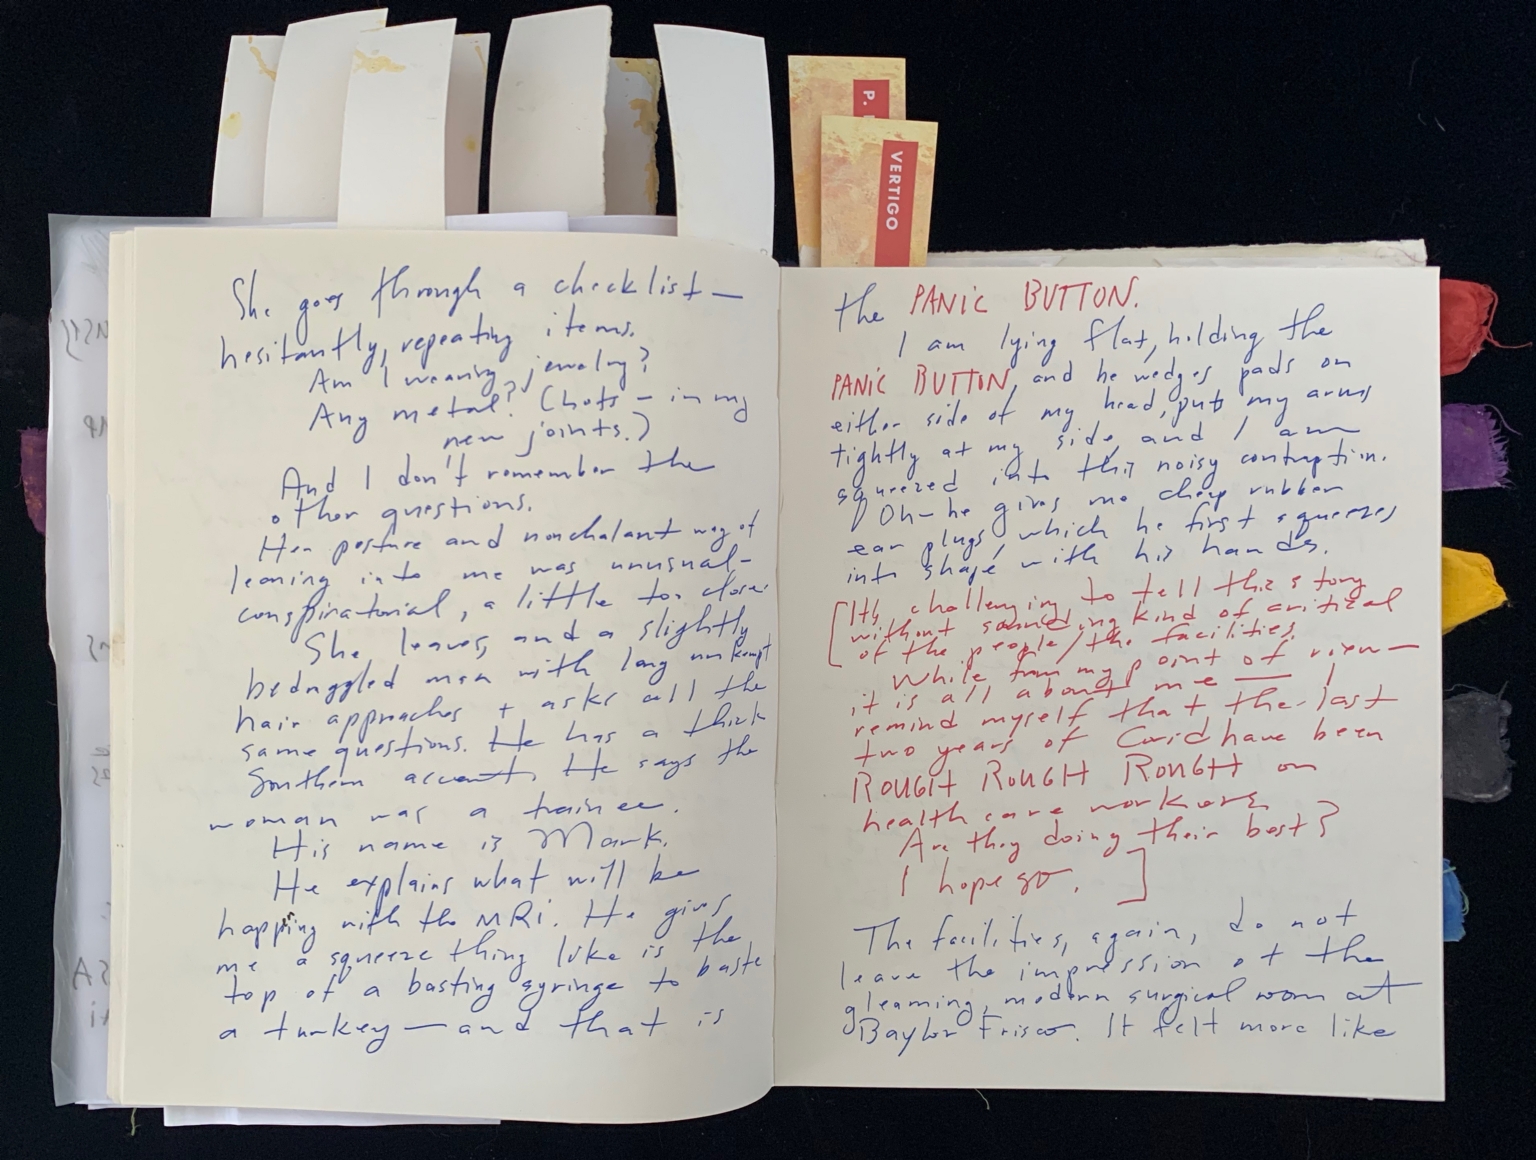 P.
VERTIGO
She goes through a checklist—
hesitantly, repeating items.
Am I wearing jewelry?
Any metal? (Lots – in my
new joints.)
And I don't remember the
other questions.
Her posture and nonchalant way of
leaning into me was unusual–
conspiratorial, a little too close.
She leaves and a slightly
bedraggled man with long unkempt
hair approaches + asks all the
same questions. He has a thick
Southern accent. He says the
woman was a trainee.
His name is Mark.
He explains what will be
happing with the MRi. He gives
me a squeeze thing like is the
top of a basting syringe to baste
a turkey—and that is
the PANiC BUTTON.
I am lying flat, holding the
PANiC BUTTON, and he wedges pads on
either side of my head, puts my arms
tightly at my side, and I am
squeezed into this noisy contraption.
Oh– he gives me cheap rubber
ear plugs which he first squeezes
into shape with his hands.
[It's challenging to tell this story
without sounding kind of critical
of the people/the facilities.
While from my point of view—
it is all about me — I
remind myself that the last
two years of Covid have been
ROUGH ROUGH ROUGH on
health care workers.
Are they doing their best?
I hope so. ]
The facilities, again, do not
leave the impression of the
gleaming, modern surgical room at
Baylor Frisco. It felt more like